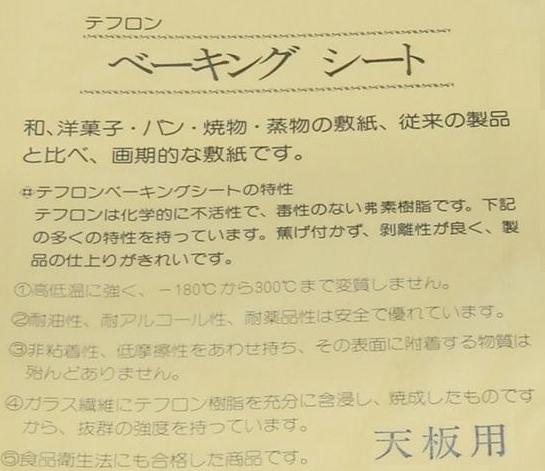 テフロン
ベーキング シート
和、洋菓子・パン・焼物・蒸物の敷紙、従来の製品
と比べ、画期的な敷紙です。
#テフロンベーキングシートの特性
テフロンは化学的に不活性で、毒性のない弗素樹脂です。下記
の多くの特性を持っています。焦げ付かず、剥離性が良く、製
品の仕上りがきれいです。
①高低温に強く、−180℃から300℃まで変質しません。
②耐油性、耐アルコール性、耐薬品性は安全で優れています。
③非粘着性、低摩擦性をあわせ持ち、その表面に附着する物質は
殆んどありません。
④ガラス繊維にテフロン樹脂を充分に含浸し、焼成したものです
から、抜群の強度を持っています。
⑤食品衛生法にも合格した商品です。
天板用